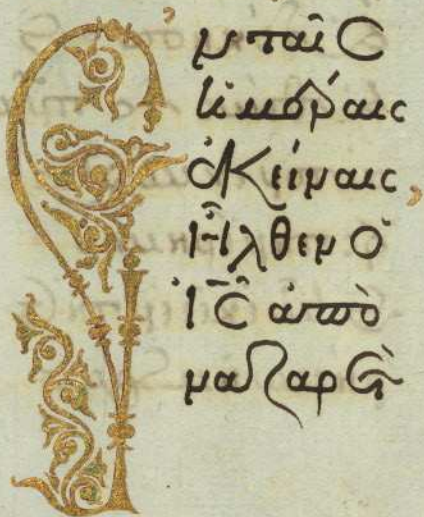 Ἐν ταῖς
ἡμέραις
ἐκείναις,
ἦλθεν ὁ
ἰς̅ ἀπὸ
ναζαρὲτ